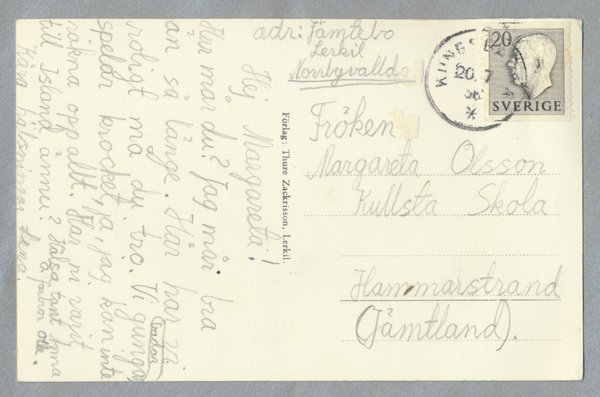 adr: Jämtebo
Lerkil
Norrbyvalda
Hej Margareta!
Hur mår du? Jag mår bra
än så länge. Här har vi
roligt må du tro. Vi gungar
spelar krocket, ja, jag kan inte
räkna opp allt. Har ni varit
till Island ännu? Hälsa tant Anna
o. farbror Olle.
Kära hälsningar Lena.
Förlag: Thure Zackrisson, Lerkil.
20
SVERIGE
20. 7
Fröken
Margareta Olsson
Kullsta Skola
Hammarstrand
(Jämtland).